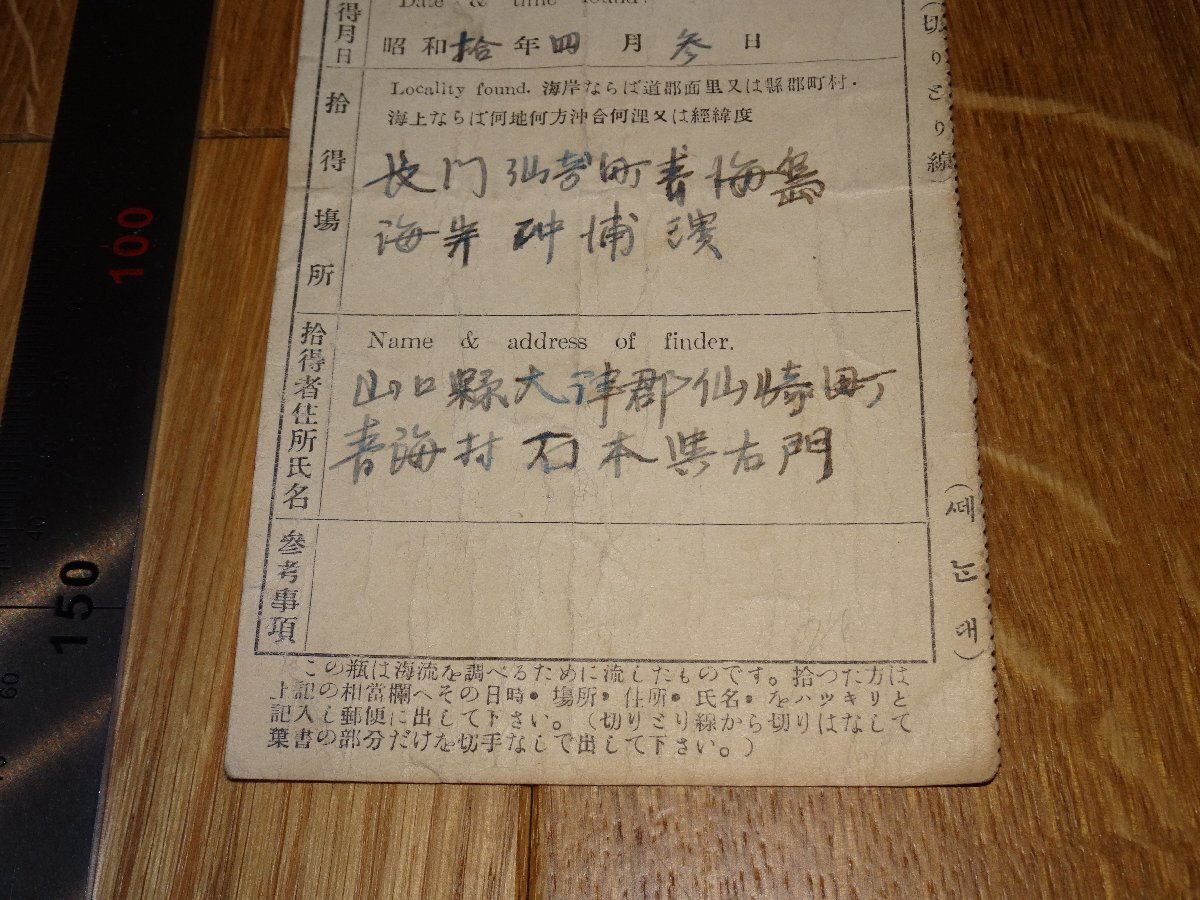 Date & time found.
得月日
昭和拾年四月参日
拾得場所
Locality found. 海岸ならば道郡面里又は縣郡町村.
海上ならば何地何方沖合何浬又は經緯度
長門仙崎町青海島
海岸
濱
拾得者住所氏名
Name & address of finder.
山口縣大津郡仙崎町
青海村 石本 右門
參考事項
この瓶は海流を調べるために流したものです。拾つた方は
上記の相當欄へその日時・場所・住所・氏名・をハツキリと
記入し郵便に出して下さい。(切りとり線から切りはなして
葉書の部分だけを切手なしで出して下さい。)
(切りとり線)
(떼는대)
100
150
60
40